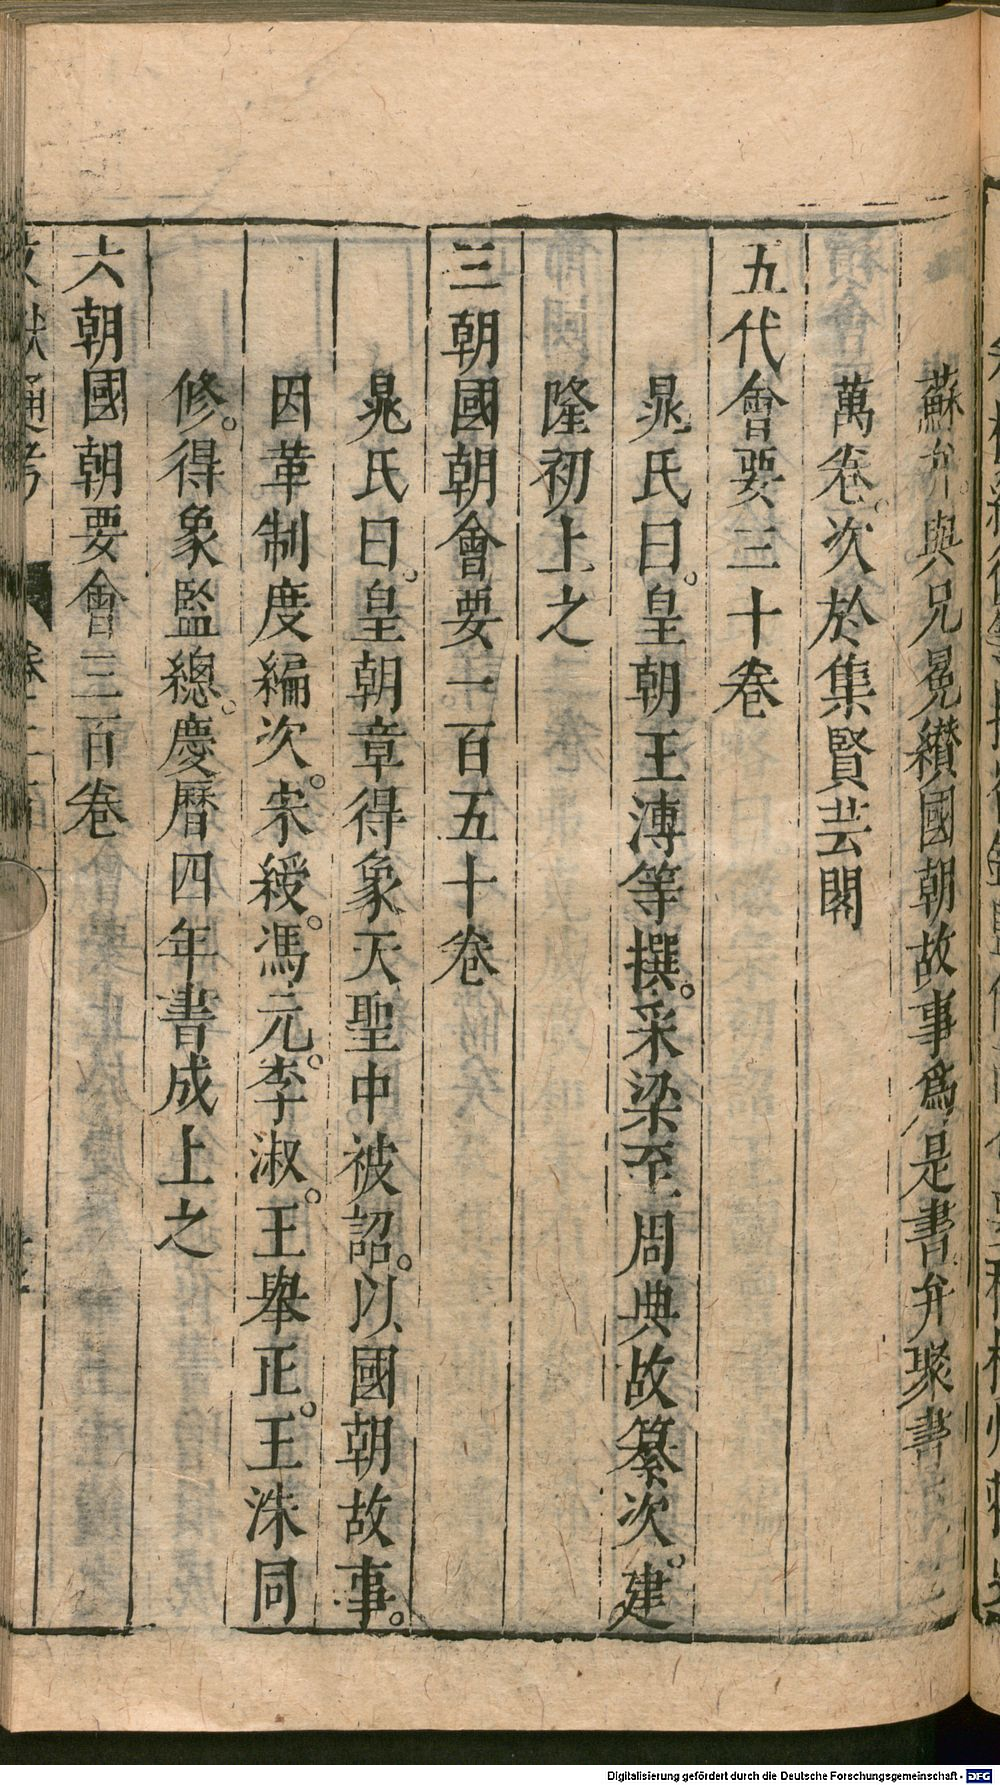 蘇弁。與兄冕纘國朝故事爲是書。弁聚書
萬卷。次於集賢芸閣
五代會要三十卷
晁氏曰。皇朝王溥等撰。采梁至周典故纂次。建
隆初上之
三朝國朝會要一百五十卷
晁氏曰。皇朝章得象天聖中被詔。以國朝故事。
因革制度編次。宋綬。馮元。李淑。王舉正。王洙同
修。得象監總。慶曆四年書成上之
六朝國朝要會三百卷
文獻通考 卷二百一
Digitalisierung gefördert durch die Deutsche Forschungsgemeinschaft - DFG